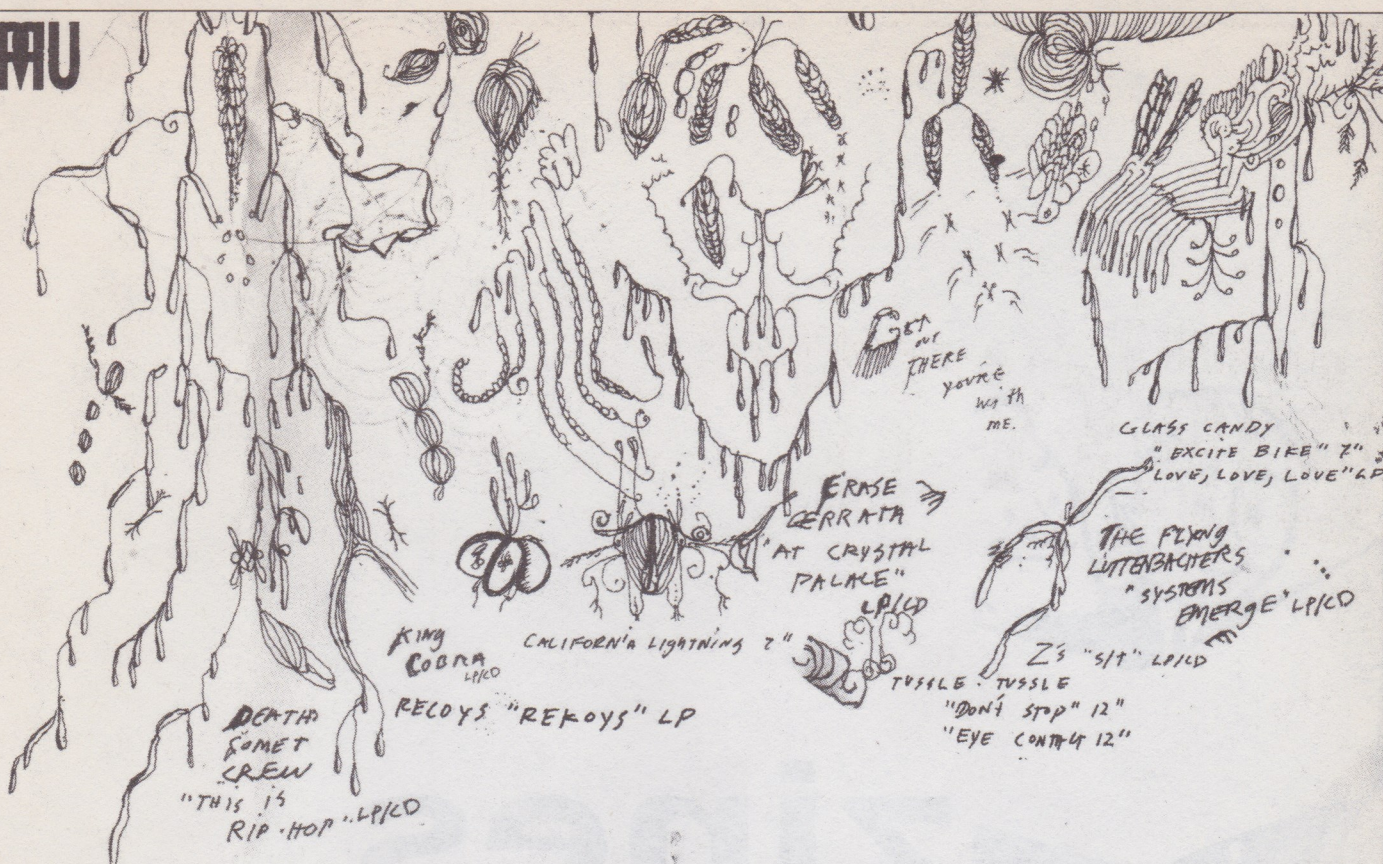 TMU
GET
OUT
THERE
YOU'RE
WITH
ME.
GLASS CANDY
"EXCITE BIKE" 7"
"LOVE, LOVE, LOVE" LP
ERASE
ERRATA
"AT CRYSTAL
PALACE"
LP/CD
THE FLYING
LUTTENBACHERS
"SYSTEMS
EMERGE" LP/CD
KING
COBRA
LP/CD
CALIFORNIA LIGHTNING 7"
Z's "S/T" LP/CD
TUSSLE · TUSSLE
"DON'T STOP" 12"
"EYE CONTACT 12"
RECOYS "REKOYS" LP
DEATH
COMET
CREW
"THIS IS
RIP·HOP" LP/CD